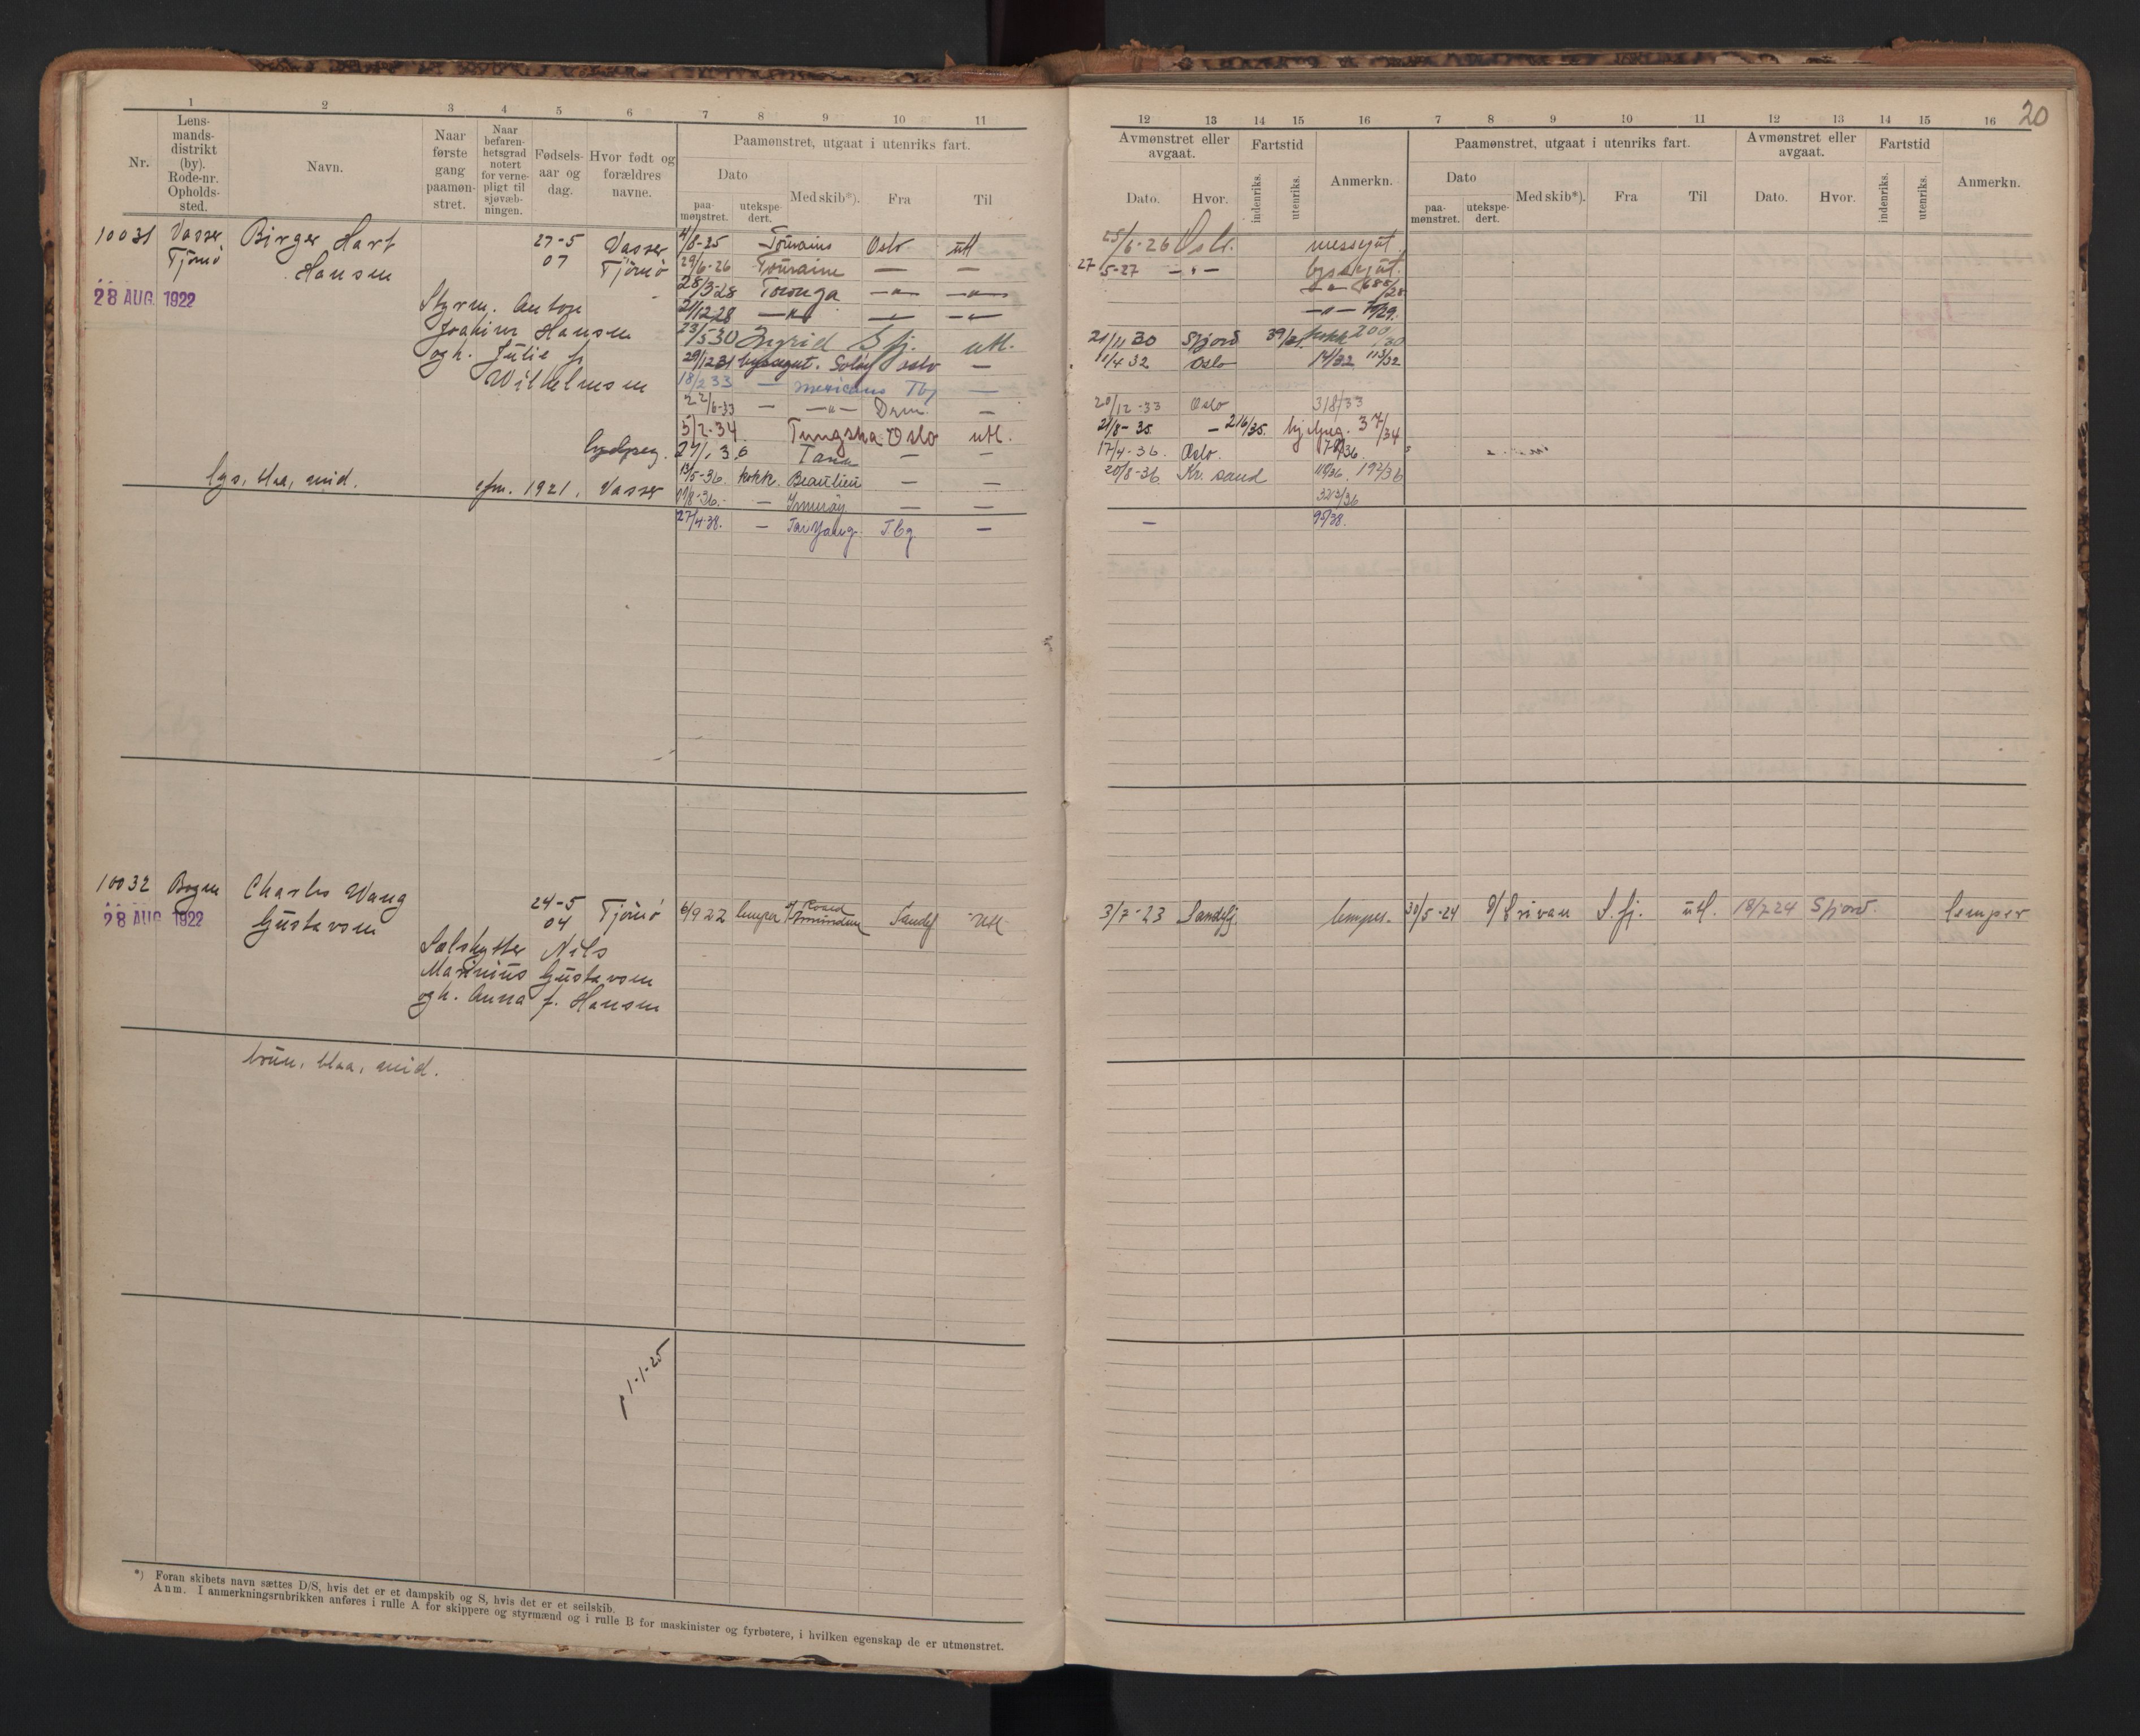 20
1 2 3 4 5 6 7 8 9 10 11
12 13 14 15 16 7 8 9 10 11 12 13 14 15 16
Nr.
Lens-
mands-
distrikt
(by).
Rode-nr.
Opholds-
sted.
Navn.
Naar
første
gang
paamøn-
stret.
Naar
befaren-
hetsgrad
notert
for verne-
pligt til
sjøvæb-
ningen.
Fødsels-
aar og
dag.
Hvor født og
forældres
navne.
Paamønstret, utgaat i utenriks fart.
Dato
paa-
mønstret.
utekspe-
dert.
Med skib*).
Fra
Til
Avmønstret eller
avgaat.
Dato.
Hvor.
Fartstid
indenriks.
utenriks.
Anmerkn.
Paamønstret, utgaat i utenriks fart.
Dato
paa-
mønstret.
utekspe-
dert.
Med skib*).
Fra
Til
Avmønstret eller
avgaat.
Dato.
Hvor.
Fartstid
indenriks.
utenriks.
Anmerkn.
10031 Vasser Birger Harf 27-5 Vasser
Tjømø Hansen 07 Tjømø
28 AUG. 1922
Styrm. Anton
Joakim Hansen
og h. Julie f.
Wilhelmsen
lys, blaa, mid. 1921, Vasser
4/8-25 Touraine Oslo utl 25/6-26 Oslo. messegut.
29/6-26 Touraine — — 27/5-27 —„—
28/3-28 Toronga —„— —„— —„—
21/12 28 —„— —„— —„— —„—
23/5 30 Ingrid S fj. utl. 21/11 30 Sfjord kokk 200/30
29/12 31 Oslo — 11/4 32 Oslo 113/32
18/2 33 — Mexicano Tbg —
22/6-33 — —„— Dram. — 20/12-33 Oslo 318/33
5/2-34 Tungsha Oslo utl. 21/8-35 — 216/35. 37/34
Tana — — 17/4-36. Oslo.
13/5-36. kokk Beaulieu — — 20/8-36 Kr. sand 192/36
— — — 323/36
27/4-38. — Tai Yang. T.bg — — 95/38.
10032 Bogen Charles Wang 24-5 Tjømø
28 AUG 1922 Gustavsen 04
Sælskytter Nils
Marinius Gustavsen
og h. Anna f. Hansen
6/9 22 lemper Sandef utl 3/7-23 Sandefj. lemper. 30/5-24 S. fj. utl. 18/7 24 Sfjord. lemper
brun, blaa, mid.
1-1-25
*) Foran skibets navn sættes D/S, hvis det er et dampskib og S, hvis det er et seilskib.
Anm. I anmerkningsrubrikken anføres i rulle A for skippere og styrmænd og i rulle B for maskinister og fyrbøtere, i hvilken egenskap de er utmønstret.